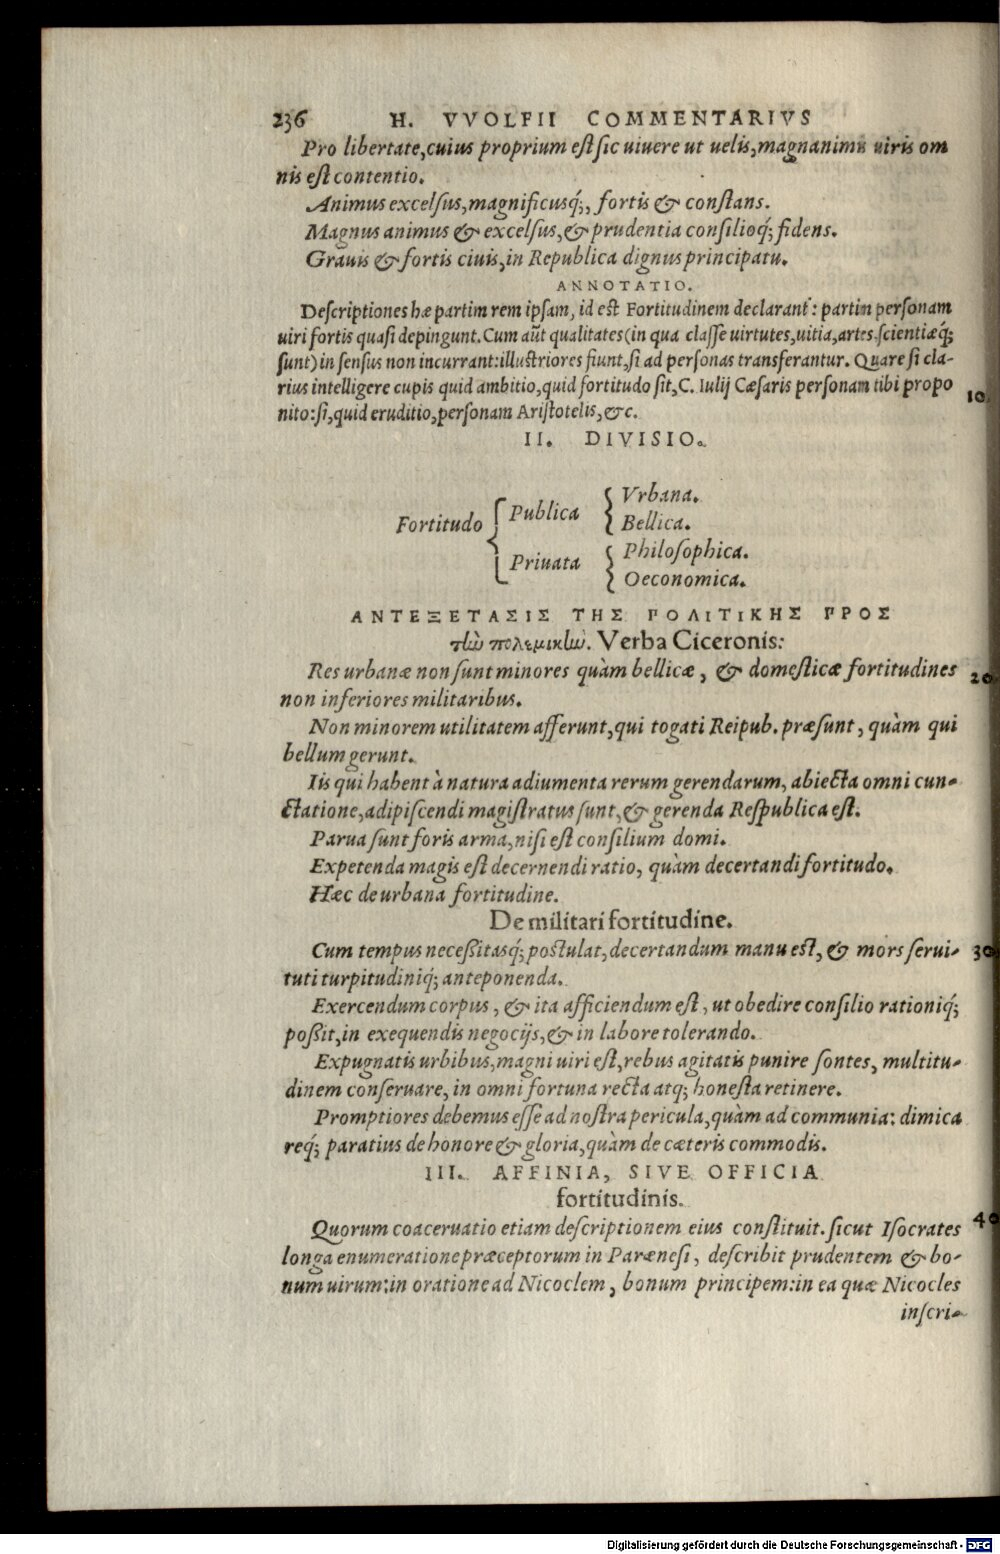 236 H. VVOLFII COMMENTARIVS
Pro libertate, cuius proprium est sic uiuere ut uelis, magnanimis uiris om
nis est contentio.
Animus excelsus, magnificusq́;, fortis & constans.
Magnus animus & excelsus, & prudentia consilioq́; fidens.
Grauis & fortis ciuis, in Republica dignus principatu.
ANNOTATIO.
Descriptiones hæ partim rem ipsam, id est Fortitudinem declarant: partim personam
uiri fortis quasi depingunt. Cum aũt qualitates (in qua classe uirtutes, uitia, artes, scientiæq́;
sunt) in sensus non incurrant: illustriores fiunt, si ad personas transferantur. Quare si cla-
rius intelligere cupis quid ambitio, quid fortitudo sit, C. Iulij Cæsaris personam tibi propo 10
nito: si, quid eruditio, personam Aristotelis, &c.
II. DIVISIO.
Fortitudo { Publica { Vrbana.
Bellica.
Priuata { Philosophica.
Oeconomica.
ΑΝΤΕΞΕΤΑΣΙΣ ΤΗΣ ΠΟΛΙΤΙΚΗΣ ΠΡΟΣ
τὼ πολεμικὼ. Verba Ciceronis:
Res urbanæ non sunt minores quàm bellicæ, & domesticæ fortitudines 20
non inferiores militaribus.
Non minorem utilitatem afferunt, qui togati Reipub. præsunt, quàm qui
bellum gerunt.
Iis qui habent à natura adiumenta rerum gerendarum, abiecta omni cun-
ctatione, adipiscendi magistratus sunt, & gerenda Respublica est.
Parua sunt foris arma, nisi est consilium domi.
Expetenda magis est decernendi ratio, quàm decertandi fortitudo.
Hæc de urbana fortitudine.
De militari fortitudine.
Cum tempus necessitasq́; postulat, decertandum manu est, & mors serui- 30
tuti turpitudiniq́; anteponenda.
Exercendum corpus, & ita afficiendum est, ut obedire consilio rationiq́;
possit, in exequendis negocijs, & in labore tolerando.
Expugnatis urbibus, magni uiri est, rebus agitatis punire sontes, multitu-
dinem conseruare, in omni fortuna recta atq; honesta retinere.
Promptiores debemus esse ad nostra pericula, quàm ad communia: dimica
req́; paratius de honore & gloria, quàm de cæteris commodis.
III. AFFINIA, SIVE OFFICIA
fortitudinis.
Quorum coaceruatio etiam descriptionem eius constituit. sicut Isocrates 40
longa enumeratione præceptorum in Parænesi, describit prudentem & bo-
num uirum: in oratione ad Nicoclem, bonum principem: in ea quæ Nicocles
inscri-
Digitalisierung gefördert durch die Deutsche Forschungsgemeinschaft - DFG